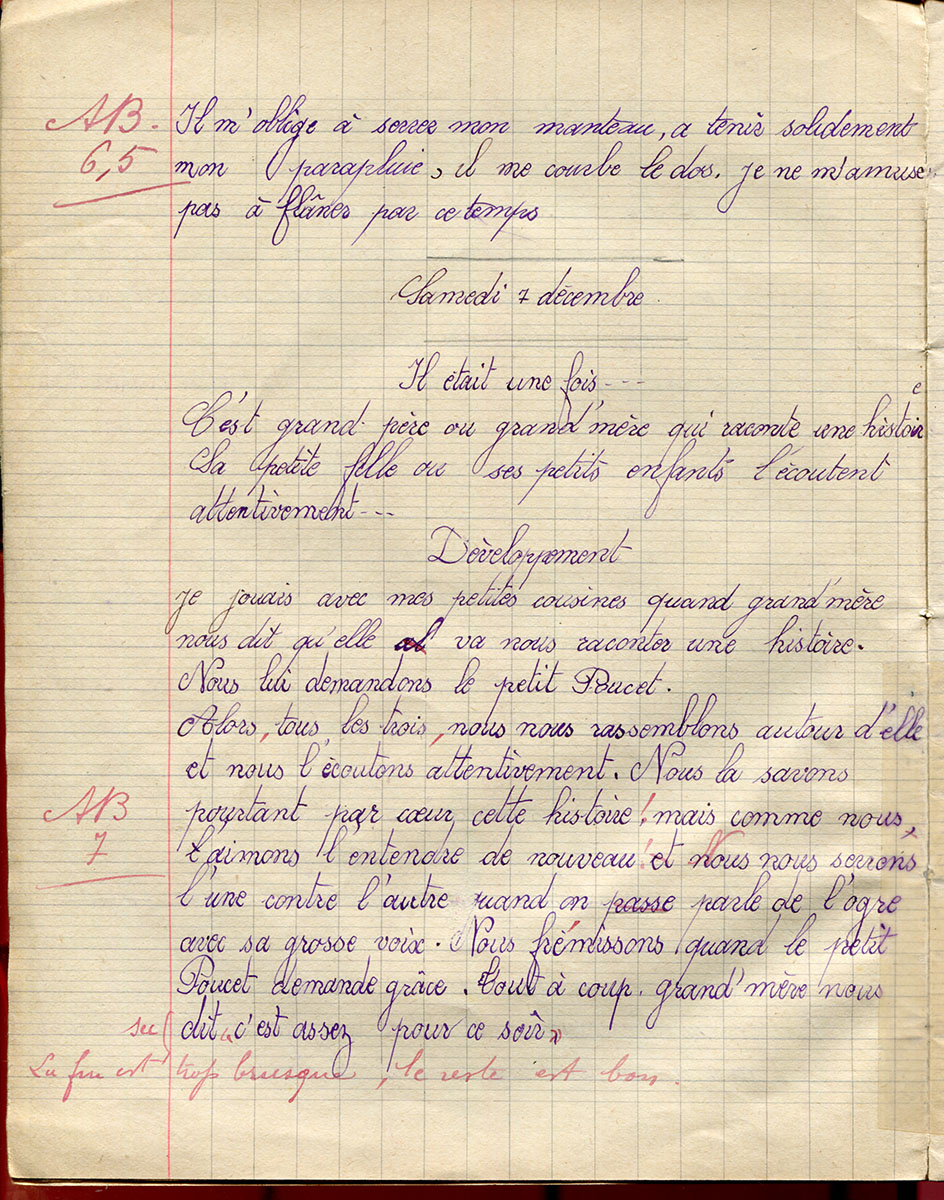 AB.
6,5
Il m'oblige à serrer mon manteau, a tenir solidement
mon parapluie, il me courbe le dos. je ne m'amuse
pas à flâner par ce temps
Samedi 7 décembre.
Il était une fois ---
C'est grand-père ou grand'mère qui raconte une histoire
Sa petite fille ou ses petits enfants l'écoutent
attentivement ---
Développement
Je jouais avec mes petites cousines quand grand'mère
nous dit qu'elle va nous raconter une histoire.
Nous lui demandons le petit Poucet.
Alors, tous les trois, nous nous rassemblons autour d'elle
et nous l'écoutons attentivement. Nous la savons
AB
7
pourtant par cœur cette histoire! mais comme nous
l'aimons l'entendre de nouveau! et Nous nous serrons
l'une contre l'autre quand on passe parle de l'ogre
avec sa grosse voix. Nous frémissons quand le petit
Poucet demande grâce. Tout à coup grand'mère nous
dit "c'est assez pour ce soir"
sec
La fin est trop brusque, le reste est bon.